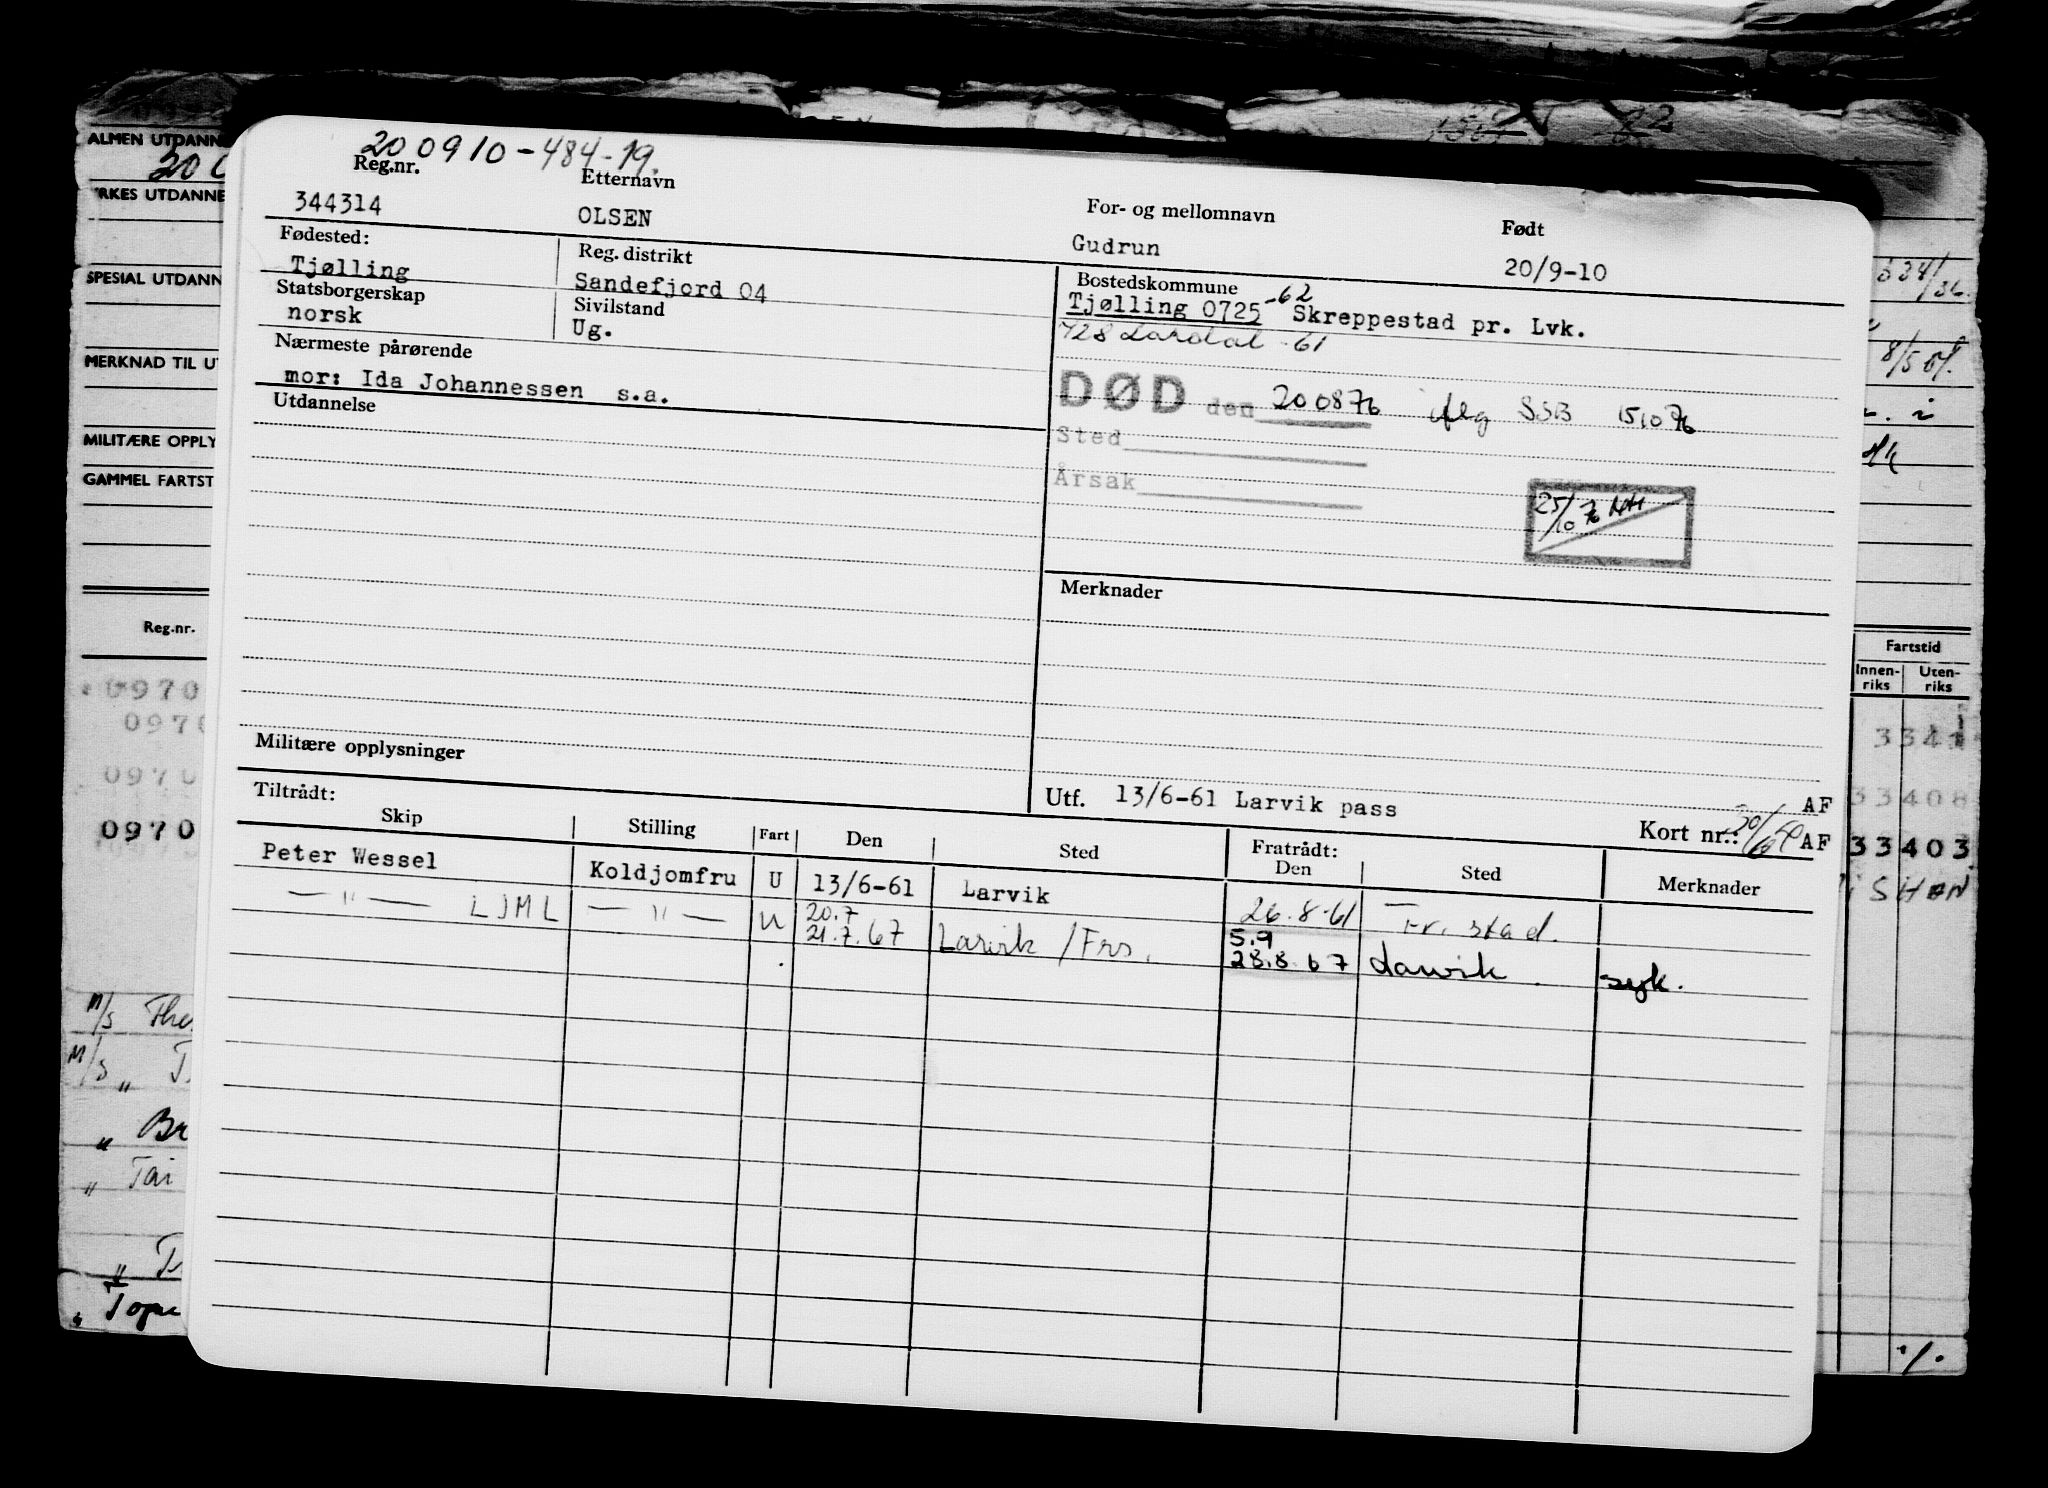 ALMEN UTDANN
YRKES UTDANNE
SPESIAL UTDANN
MERKNAD TIL UT
MILITÆRE OPPLY
GAMMEL FARTST
Reg.nr.
0970
0970
0970
0970
M/S
M/S
Tai
200910-484-19.
Reg.nr. Etternavn For- og mellomnavn Født
344314 OLSEN Gudrun 20/9-10
Fødested: Reg. distrikt Bostedskommune
Tjølling Sandefjord 04 Tjølling 0725 -62 Skreppestad pr. Lvk.
Statsborgerskap Sivilstand 728 Lardal -61
norsk Ug.
Nærmeste pårørende
mor: Ida Johannessen s.a.
DØD den 200876 SSB 151076
Utdannelse
Sted
Årsak
25/10 76
Merknader
Militære opplysninger
Utf. 13/6-61 Larvik pass AF
Tiltrådt: Kort nr.: AF
Skip Stilling Fart Den Sted Fratrådt: Den Sted Merknader
Peter Wessel Koldjomfru U 13/6-61 Larvik 26.8-61 Fr.stad.
— " — LJML — " — U 20.7 21.7.67 Larvik / Frs. 5.9 28.8.67 Larvik syk.
Fartstid
Innen-riks Uten-riks
334
33408
33403